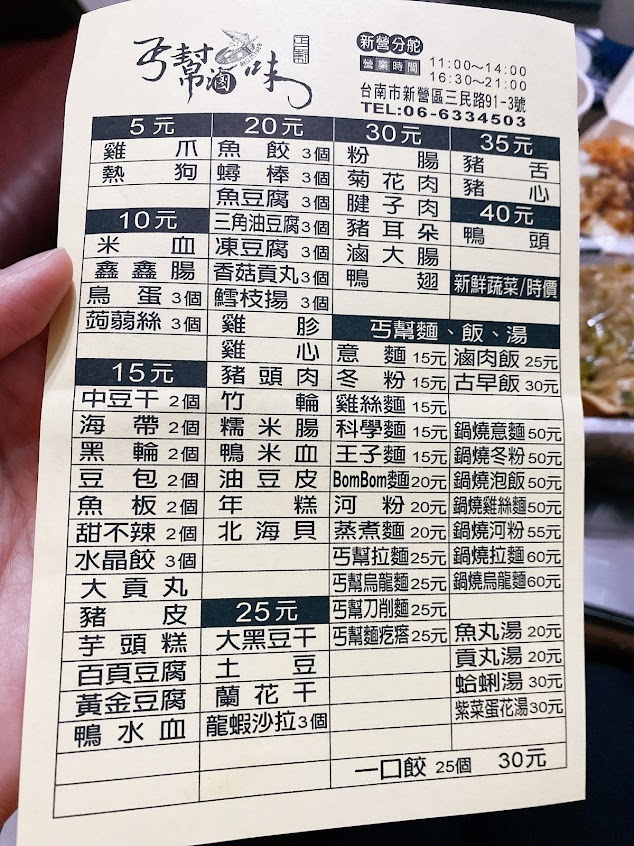 丐幫滷味
正製
新營分舵
營業時間 11:00～14:00
16:30～21:00
台南市新營區三民路91-3號
TEL:06-6334503
5元
雞爪
熱狗
10元
米血
鑫鑫腸
鳥蛋 3個
蒟蒻絲 3個
15元
中豆干 2個
海帶 2個
黑輪 2個
豆包 2個
魚板 2個
甜不辣 2個
水晶餃 3個
大貢丸
豬皮
芋頭糕
百頁豆腐
黃金豆腐
鴨水血
20元
魚餃 3個
蟳棒 3個
魚豆腐 3個
三角油豆腐 3個
凍豆腐 3個
香菇貢丸 3個
鱈枝揚 3個
雞胗
雞心
豬頭肉
竹輪
糯米腸
鴨米血
油豆皮
年糕
北海貝
25元
大黑豆干
土豆
蘭花干
龍蝦沙拉 3個
30元
粉腸
菊花肉
腱子肉
豬耳朵
滷大腸
鴨翅
35元
豬舌
豬心
40元
鴨頭
新鮮蔬菜/時價
丐幫麵、飯、湯
意麵 15元
冬粉 15元
雞絲麵 15元
科學麵 15元
王子麵 15元
BomBom麵 20元
河粉 20元
蒸煮麵 20元
丐幫拉麵 25元
丐幫烏龍麵 25元
丐幫刀削麵 25元
丐幫麵疙瘩 25元
滷肉飯 25元
古早飯 30元
鍋燒意麵 50元
鍋燒冬粉 50元
鍋燒泡飯 50元
鍋燒雞絲麵 50元
鍋燒河粉 55元
鍋燒拉麵 60元
鍋燒烏龍麵 60元
魚丸湯 20元
貢丸湯 20元
蛤蜊湯 30元
紫菜蛋花湯 30元
一口餃 25個 30元